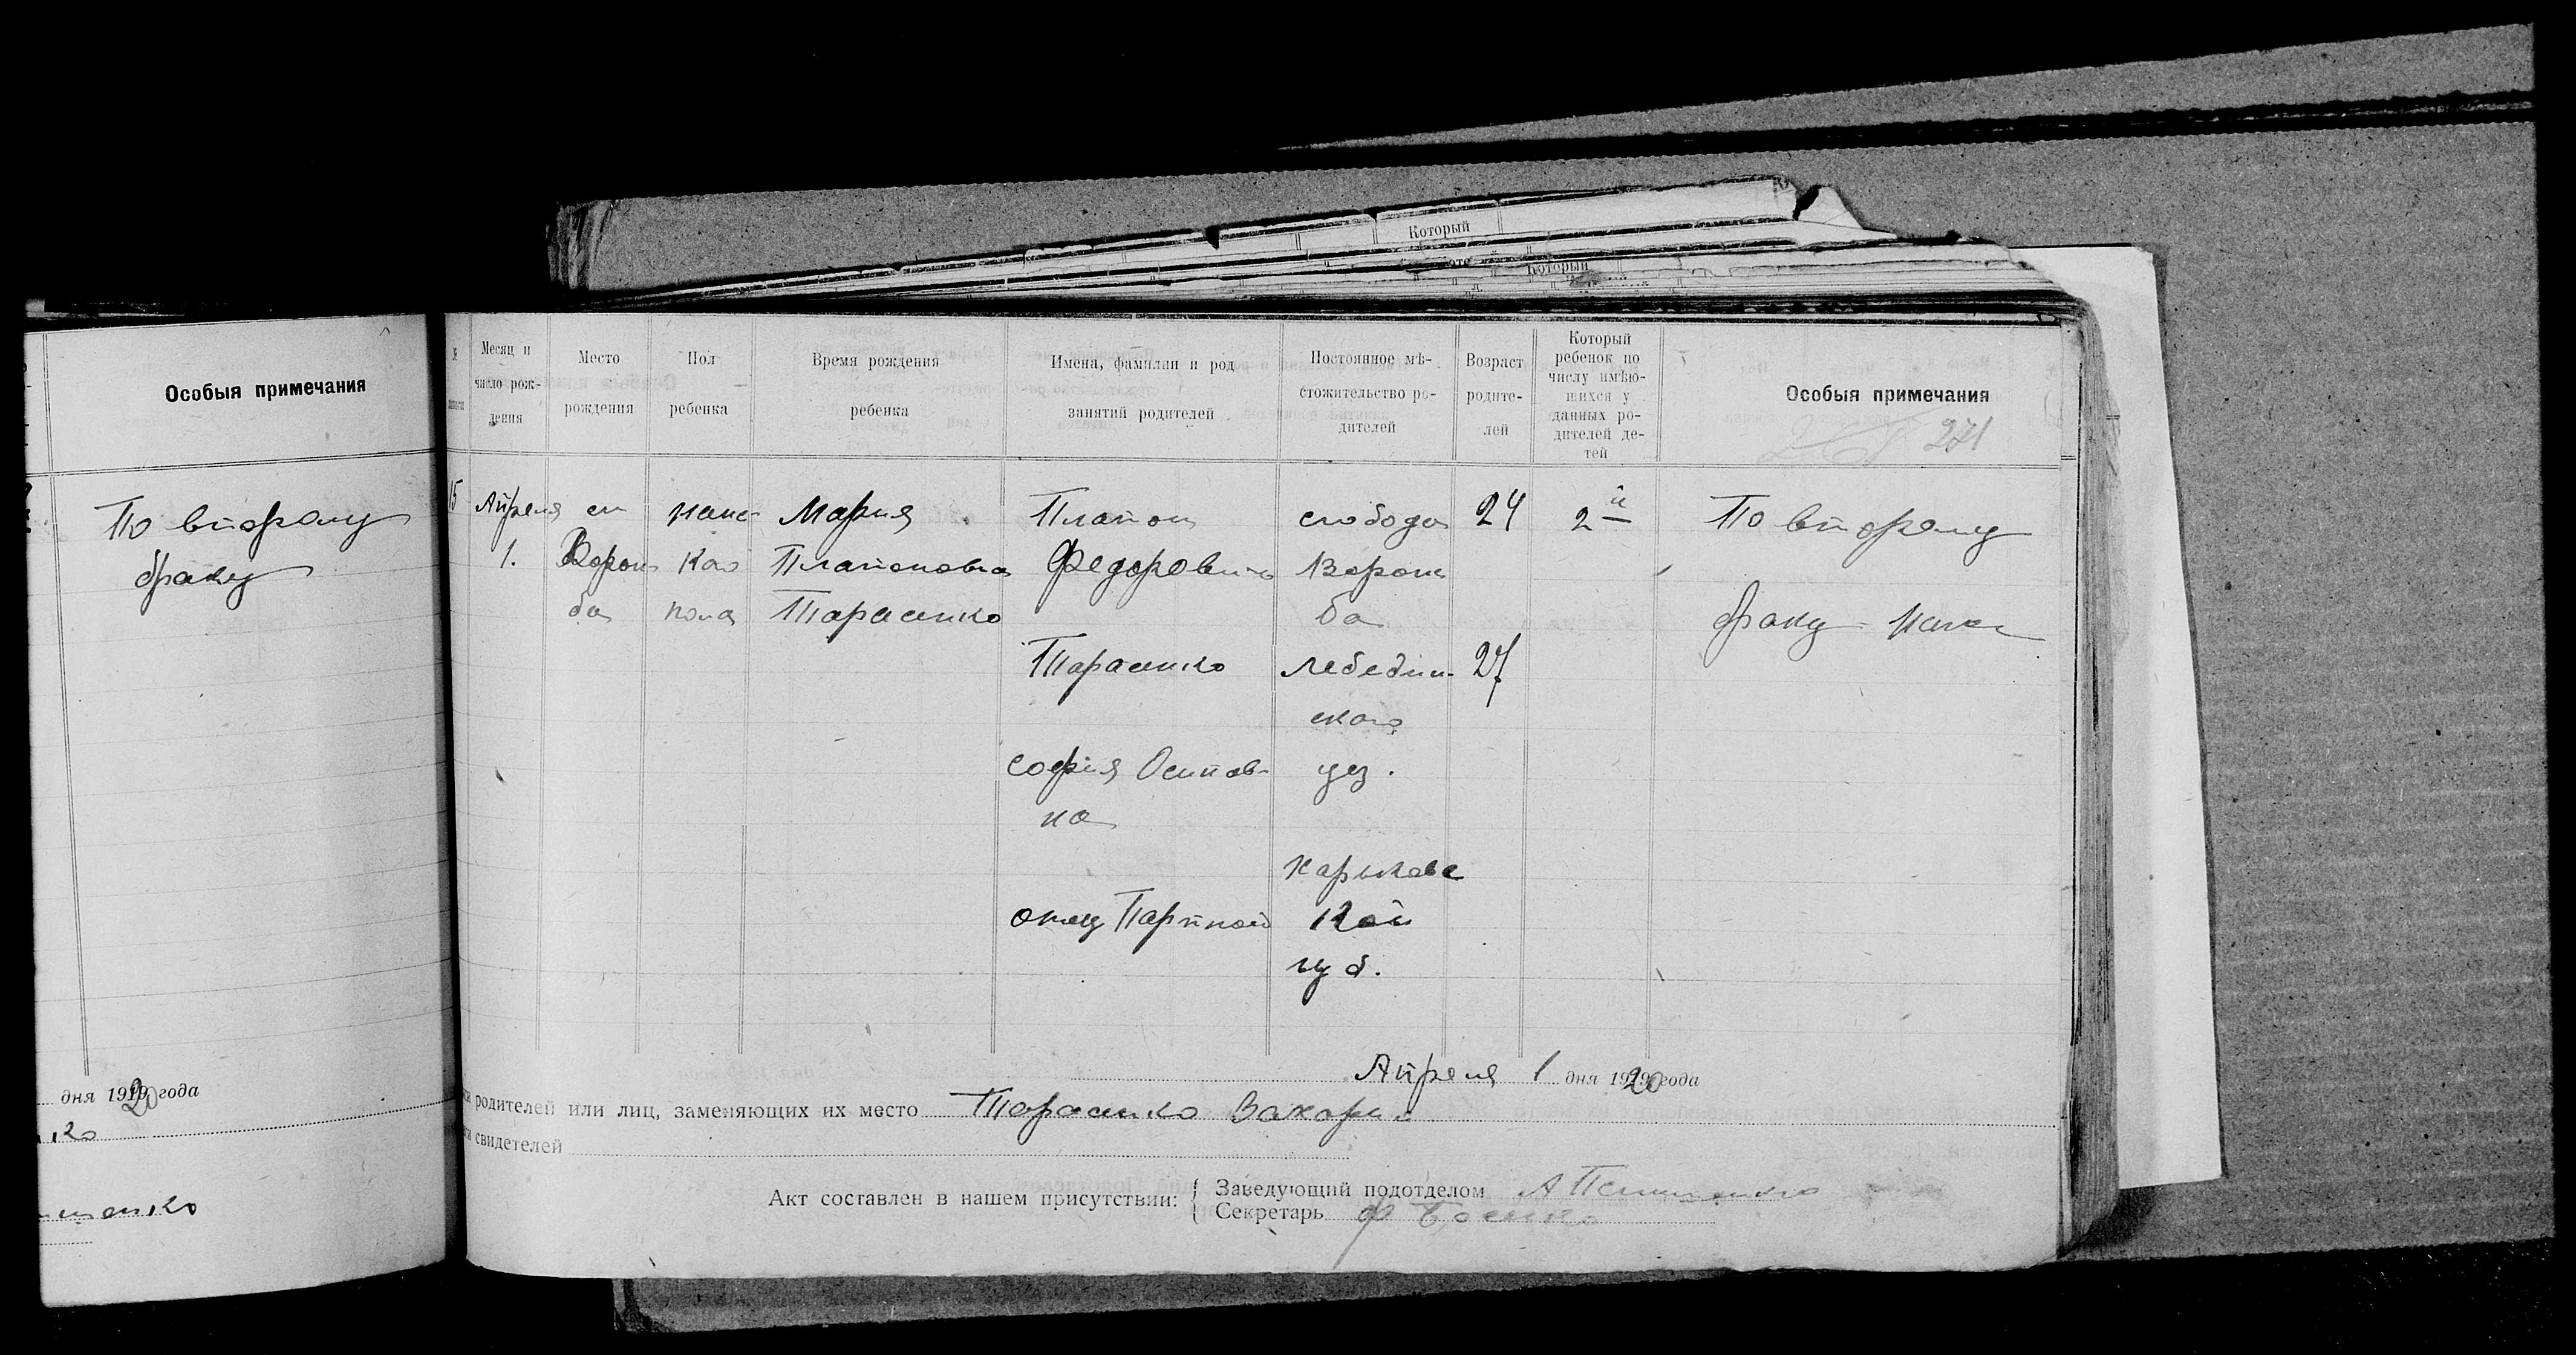 Который
Который
Особыя примечания
По второму
браку
дня 1920 года
ко
№
Месяц и
число рож-
дения
Место
рождения
Пол
ребенка
Время рождения
ребенка
Имена, фамилии и род
занятий родителей
Постоянное мѣ-
стожительство ро-
дителей
Возраст
родите-
лей
Который
ребенок по
числу имѣю-
щихся у
данных ро-
дителей де-
тей
Особыя примечания
271
15
Апреля
1.
сл
Ворож
ба
женс
кая
пола
Мария
Платоновна
Тарасенко
Платон
Федорович
Тарасенко
София Осипов-
на
отец Партной
слобода
Ворож
ба
Лебедин-
ского
уез.
Харьковс
кой
губ.
24
27
2й
По второму
браку
Апреля 1 дня 1920 года
родителей или лиц, заменяющих их место Тарасенко Захарий
свидетелей
Акт составлен в нашем присутствии:
Заведующий подотделом
Секретарь